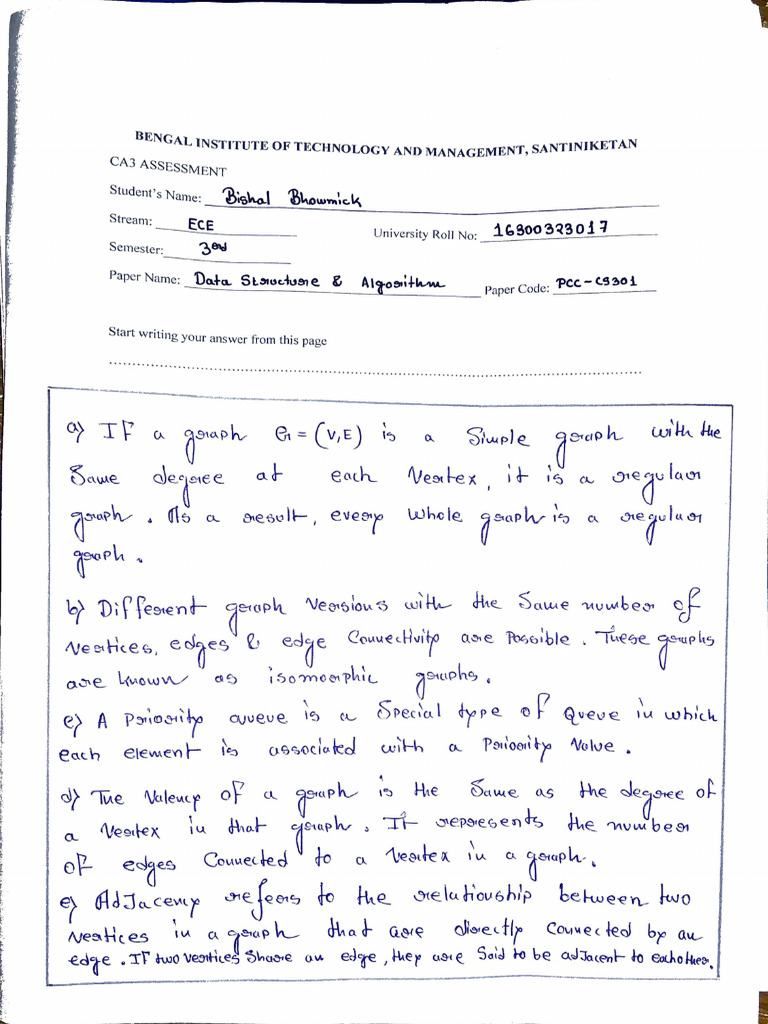 BENGAL INSTITUTE OF TECHNOLOGY AND MANAGEMENT, SANTINIKETAN
CA3 ASSESSMENT
Student's Name: Bishal Bhowmick
Stream: ECE University Roll No: 16300323017
Semester: 3rd
Paper Name: Data Structure & Algorithm Paper Code: PCC-CS301
Start writing your answer from this page
a) If a graph G = (V,E) is a Simple graph with the
Same degree at each Vertex, it is a regular
graph. As a result, every whole graph is a regular
graph.
b) Different graph Versions with the Same number of
Vertices, edges & edge Connectivity are Possible. These graphs
are known as isomorphic graphs.
c) A Priority queue is a Special type of Queue in which
each element is associated with a Priority Value.
d) The Valency of a graph is the Same as the degree of
a Vertex in that graph. It represents the number
of edges Connected to a Vertex in a graph.
e) AdJacency refers to the relationship between two
Vertices in a graph that are directly Connected by an
edge. If two vertices Share an edge, they are Said to be adJacent to eachother.